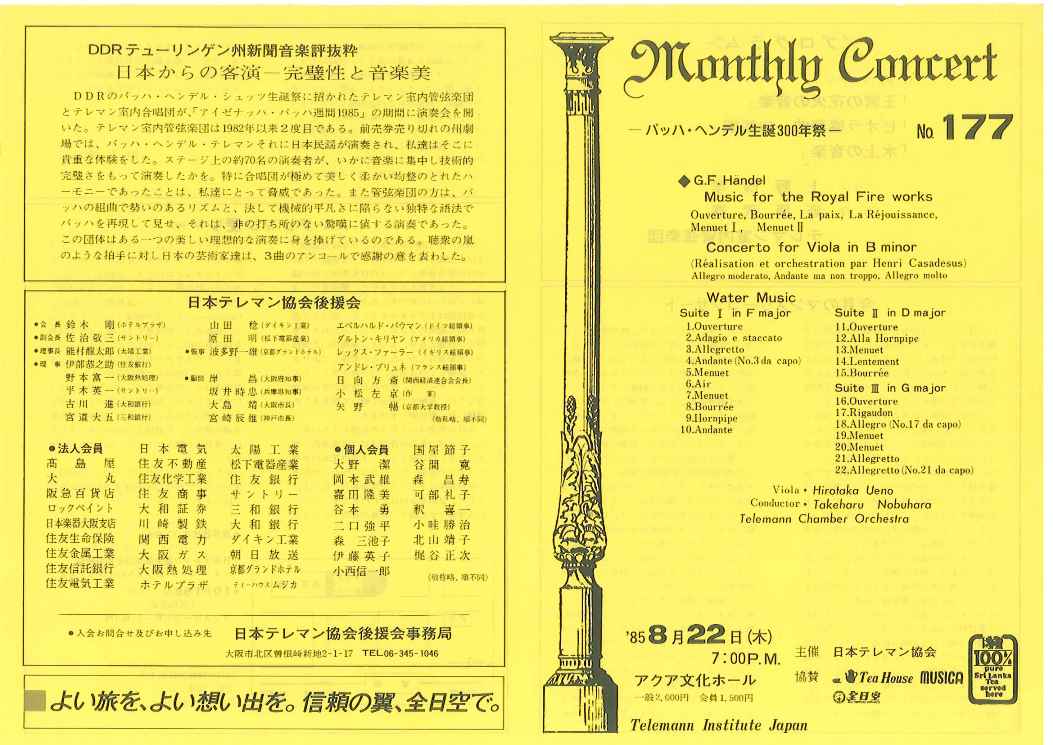 DDRテューリンゲン州新聞音楽評抜粋
日本からの客演―完璧性と音楽美
DDRのバッハ・ヘンデル・シュッツ生誕祭に招かれたテレマン室内管弦楽団
とテレマン室内合唱団が、「アイゼナッハ・バッハ週間1985」の期間に演奏会を開
いた。テレマン室内管弦楽団は1982年以来2度目である。前売券売り切れの州劇
場では、バッハ・ヘンデル・テレマンそれに日本民謡が演奏され、私達はそこに
貴重な体験をした。ステージ上の約70名の演奏者が、いかに音楽に集中し技術的
完璧さをもって演奏したかを。特に合唱団が極めて美しく柔かい均整のとれたハ
ーモニーであったことは、私達にとって脅威であった。また管弦楽団の方は、バ
ッハの組曲で勢いのあるリズムと、決して機械的平凡さに陥らない独特な語法で
バッハを再現して見せ、それは、非の打ち所のない驚嘆に値する演奏であった。
この団体はある一つの美しい理想的な演奏に身を捧げているのである。聴衆の嵐
のような拍手に対し日本の芸術家達は、3曲のアンコールで感謝の意を表わした。
日本テレマン協会後援会
●会長 鈴木 剛(ホテルプラザ)
●副会長 佐治敬三(サントリー)
●理事長 能村龍太郎(太陽工業)
●理事 伊部恭之助(住友銀行)
野本富一(大阪熱処理)
平木英一(サントリー)
古川 進(大和銀行)
宮道大五(三和銀行)
山田 稔(ダイキン工業)
原田 明(松下電器産業)
●幹事 波多野一雄(京都グランドホテル)
●顧問 岸 昌(大阪府知事)
坂井時忠(兵庫県知事)
大島 靖(大阪市長)
宮崎辰雄(神戸市長)
エベルハルド・バウマン(ドイツ総領事)
ダルトン・キリヤン(アメリカ総領事)
レックス・ファーラー(イギリス総領事)
アンドレ・ブリュネ(フランス総領事)
日向方斎(関西経済連合会会長)
小松左京(作家)
矢野 暢(京都大学教授)
(敬称略、順不同)
●法人会員
髙島屋
大丸
阪急百貨店
ロックペイント
日本楽器大阪支店
住友生命保険
住友金属工業
住友信託銀行
住友電気工業
日本電気
住友不動産
住友化学工業
住友商事
大和証券
川崎製鉄
関西電力
大阪ガス
大阪熱処理
ホテルプラザ
太陽工業
松下電器産業
住友銀行
サントリー
三和銀行
大和銀行
ダイキン工業
朝日放送
京都グランドホテル
ティーハウスムジカ
●個人会員
大野 潔
岡本武雄
嘉田隆美
谷本 勇
二口強平
森 三池子
伊藤英子
小西信一郎
国屋節子
谷間 寛
森 昌寿
可部礼子
釈 喜一
小畦勝治
北山靖子
梶谷正次
(敬称略、順不同)
●入会お問合せ及びお申し込み先 日本テレマン協会後援会事務局
大阪市北区曽根崎新地2-1-17 TEL.06-345-1046
よい旅を、よい想い出を。信頼の翼、全日空で。
Monthly Concert
―バッハ・ヘンデル生誕300年祭― No. 177
◆G.F. Handel
Music for the Royal Fire works
Ouverture, Bourrée, La paix, La Réjouissance,
Menuet I, Menuet II
Concerto for Viola in B minor
(Réalisation et orchestration par Henri Casadesus)
Allegro moderato, Andante ma non troppo, Allegro molto
Water Music
Suite I in F major
1.Ouverture
2.Adagio e staccato
3.Allegretto
4.Andante (No.3 da capo)
5.Menuet
6.Air
7.Menuet
8.Bourrée
9.Hornpipe
10.Andante
Suite II in D major
11.Ouverture
12.Alla Hornpipe
13.Menuet
14.Lontement
15.Bourrée
Suite III in G major
16.Ouverture
17.Rigaudon
18.Allegro (No.17 da capo)
19.Menuet
20.Menuet
21.Allegretto
22.Allegretto (No.21 da capo)
Viola・Hirotaka Ueno
Conductor・Takeharu Nobuhara
Telemann Chamber Orchestra
'85 8月22日(木)
7:00P.M.
アクア文化ホール
一般2,000円 会員1,500円
主催 日本テレマン協会
協賛 Tea House MUSICA
全日空
100%
pure
Sri Lanka
Tea
served
here
Telemann Institute Japan